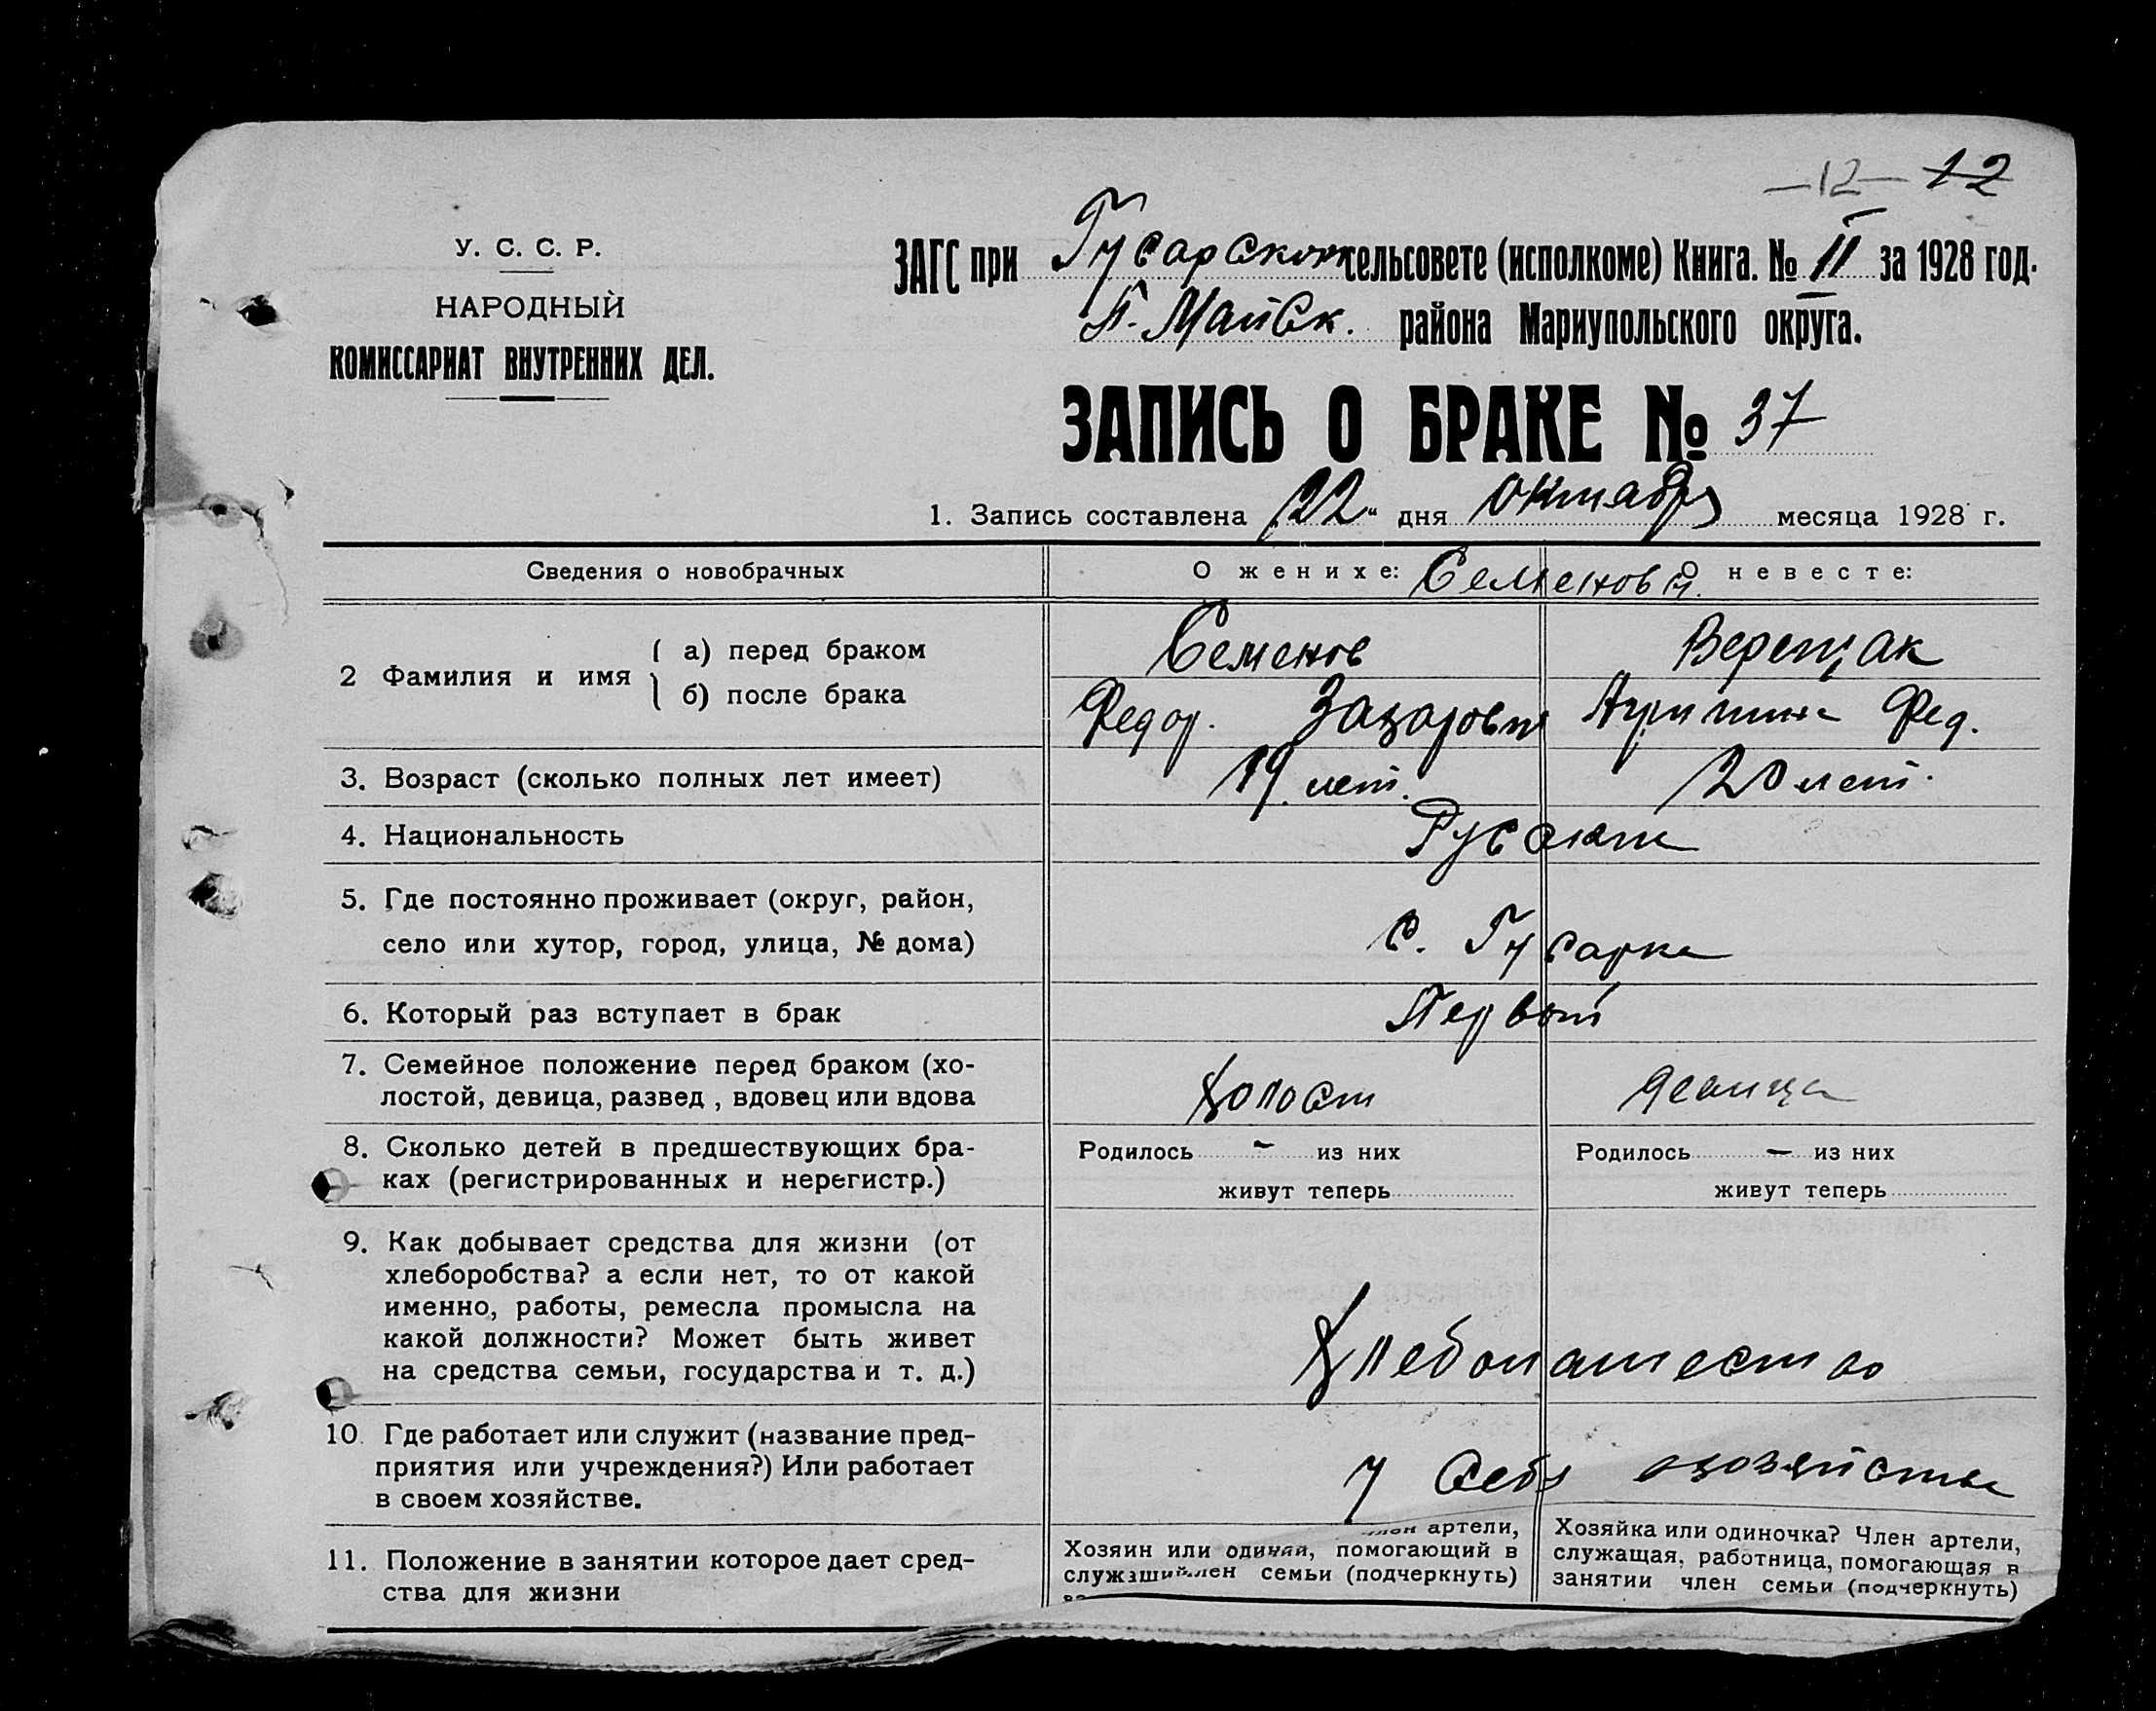 —12— 12
У. С. С. Р.
НАРОДНЫЙ
КОМИССАРИАТ ВНУТРЕННИХ ДЕЛ.
ЗАГС при Гусарском сельсовете (исполкоме) Книга. № II за 1928 год.
П. Майск. района Мариупольского округа.
ЗАПИСЬ О БРАКЕ № 37
1. Запись составлена „22“ дня октября месяца 1928 г.
Сведения о новобрачных О женихе: О невесте:
Семеновы.
2 Фамилия и имя { а) перед браком
б) после брака
Семенов Верещак
Федор. Захарович Агрипина Фед.
3. Возраст (сколько полных лет имеет) 19 лет. 20 лет.
4. Национальность Руские
5. Где постоянно проживает (округ, район,
село или хутор, город, улица, № дома) с. Гусарка
6. Который раз вступает в брак Первый
7. Семейное положение перед браком (хо-
лостой, девица, развед , вдовец или вдова холост девица
8. Сколько детей в предшествующих бра- Родилось – из них Родилось — из них
ках (регистрированных и нерегистр.) живут теперь живут теперь
9. Как добывает средства для жизни (от
хлеборобства? а если нет, то от какой
именно, работы, ремесла промысла на
какой должности? Может быть живет
на средства семьи, государства и т. д.)
Хлебопашество
10. Где работает или служит (название пред-
приятия или учреждения?) Или работает
в своем хозяйстве.
у себя хозяйстве
11. Положение в занятии которое дает сред-
ства для жизни
артели,
Хозяин или помогающий в
семьи (подчеркнуть)
Хозяйка или одиночка? Член артели,
служащая, работница, помогающая в
занятии член семьи (подчеркнуть)